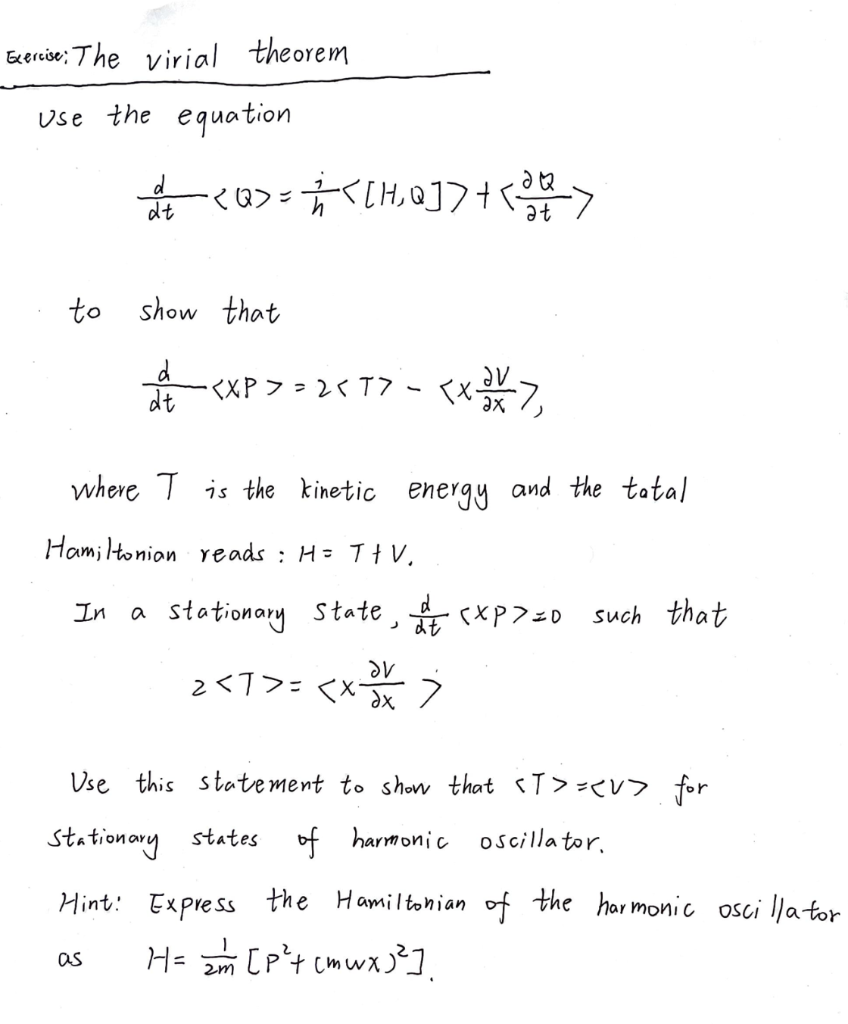 Exercise: The virial theorem
Use the equation
d/dt <Q> = i/h <[H,Q]> + <∂Q/∂t>
to show that
d/dt <XP> = 2<T> - <x ∂V/∂x>,
where T is the kinetic energy and the total
Hamiltonian reads : H = T + V.
In a stationary state, d/dt <XP> = 0 such that
2<T> = <x ∂V/∂x>
Use this statement to show that <T> = <V> for
stationary states of harmonic oscillator.
Hint: Express the Hamiltonian of the harmonic oscillator
as H = 1/2m [P²+ (mwx)²].